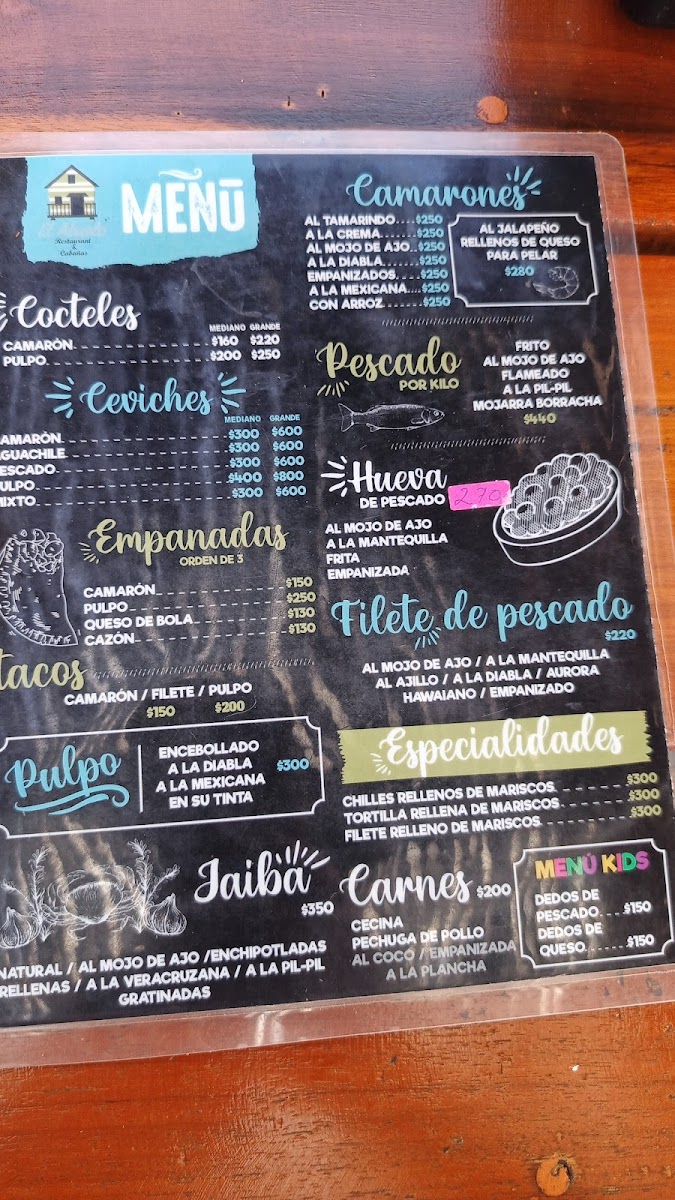 MENŪ
Restaurant
&
Cabañas
Cocteles
MEDIANO GRANDE
CAMARÓN $160 $220
PULPO $200 $250
Ceviches
MEDIANO GRANDE
AMARÓN $300 $600
GUACHILE $300 $600
ESCADO $300 $600
ULPO $400 $800
MIXTO $300 $600
Empanadas
ORDEN DE 3
CAMARÓN $150
PULPO $250
QUESO DE BOLA $130
CAZÓN $130
tacos
CAMARÓN / FILETE / PULPO
$150 $200
Pulpo
ENCEBOLLADO
A LA DIABLA
A LA MEXICANA
EN SU TINTA
$300
Jaiba
$350
NATURAL / AL MOJO DE AJO /ENCHIPOTLADAS
RELLENAS / A LA VERACRUZANA / A LA PIL-PIL
GRATINADAS
Camarones
AL TAMARINDO....$250
A LA CREMA......$250
AL MOJO DE AJO..$250
A LA DIABLA.....$250
EMPANIZADOS.....$250
A LA MEXICANA...$250
CON ARROZ.......$250
AL JALAPEÑO
RELLENOS DE QUESO
PARA PELAR
$280
Pescado
POR KILO
FRITO
AL MOJO DE AJO
FLAMEADO
A LA PIL-PIL
MOJARRA BORRACHA
$440
Hueva
DE PESCADO
270
AL MOJO DE AJO
A LA MANTEQUILLA
FRITA
EMPANIZADA
Filete de pescado
$220
AL MOJO DE AJO / A LA MANTEQUILLA
AL AJILLO / A LA DIABLA / AURORA
HAWAIANO / EMPANIZADO
Especialidades
CHILLES RELLENOS DE MARISCOS $300
TORTILLA RELLENA DE MARISCOS $300
FILETE RELLENO DE MARISCOS $300
Carnes $200
CECINA
PECHUGA DE POLLO
AL COCO / EMPANIZADA
A LA PLANCHA
MENÚ KIDS
DEDOS DE
PESCADO....$150
DEDOS DE
QUESO......$150